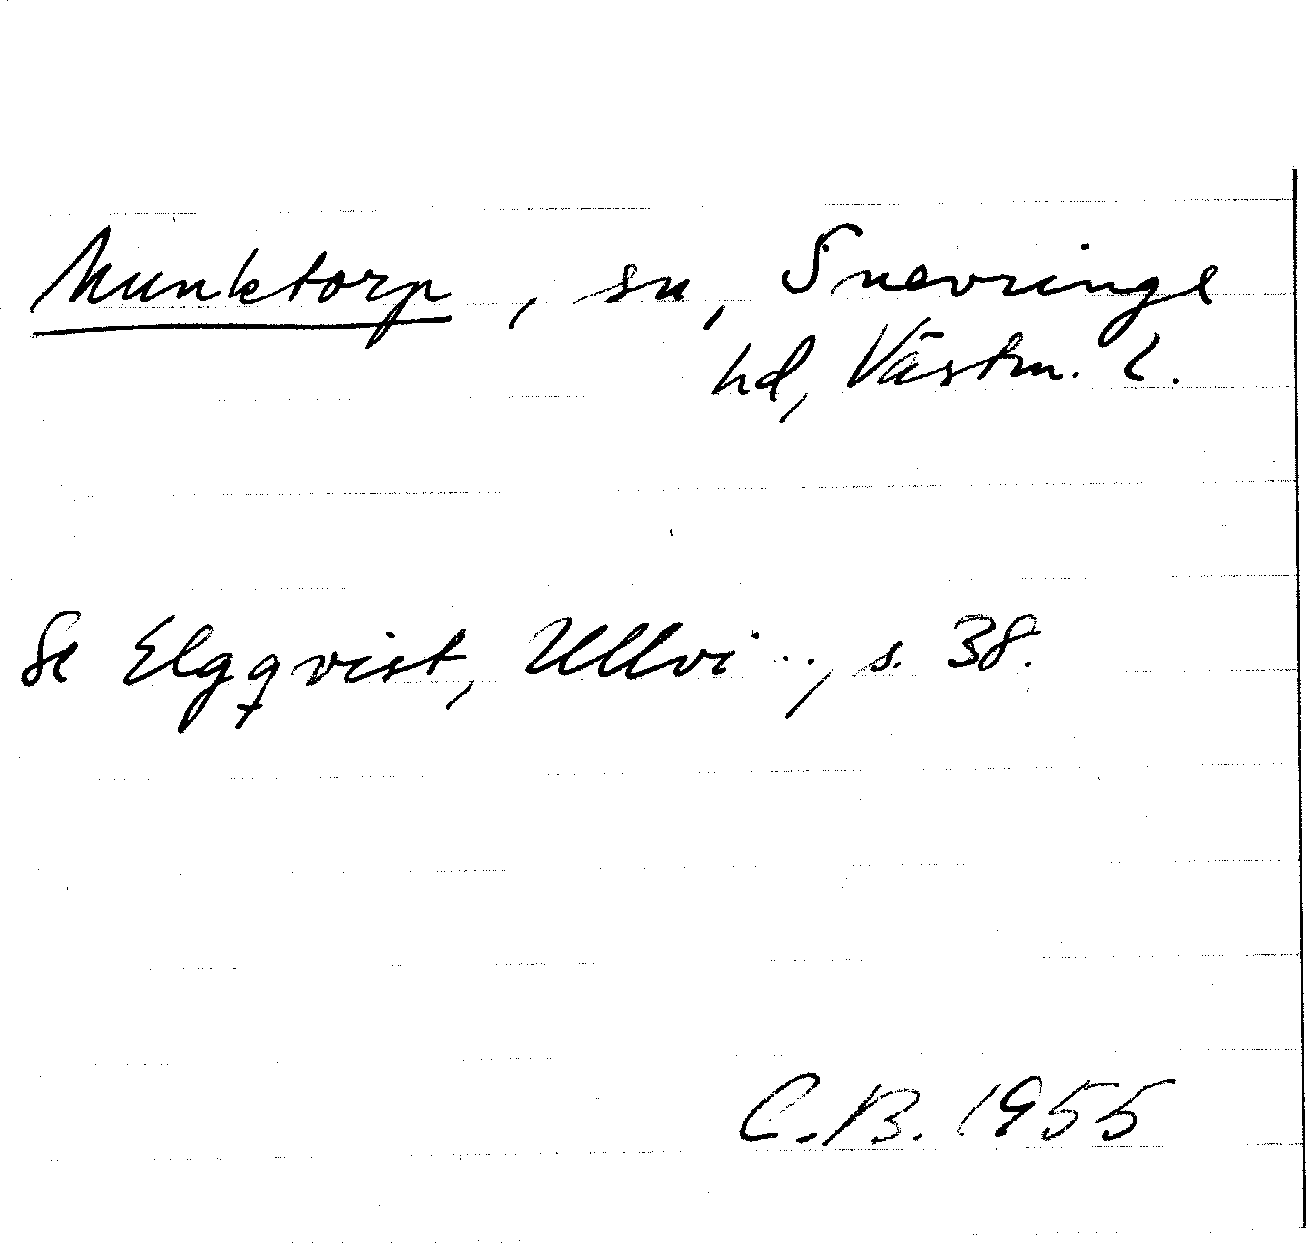 Munktorp, sn, Snevringe
hd, Västm. l.
Se Elgqvist, Ullvi..., s. 38.
C.B. 1955